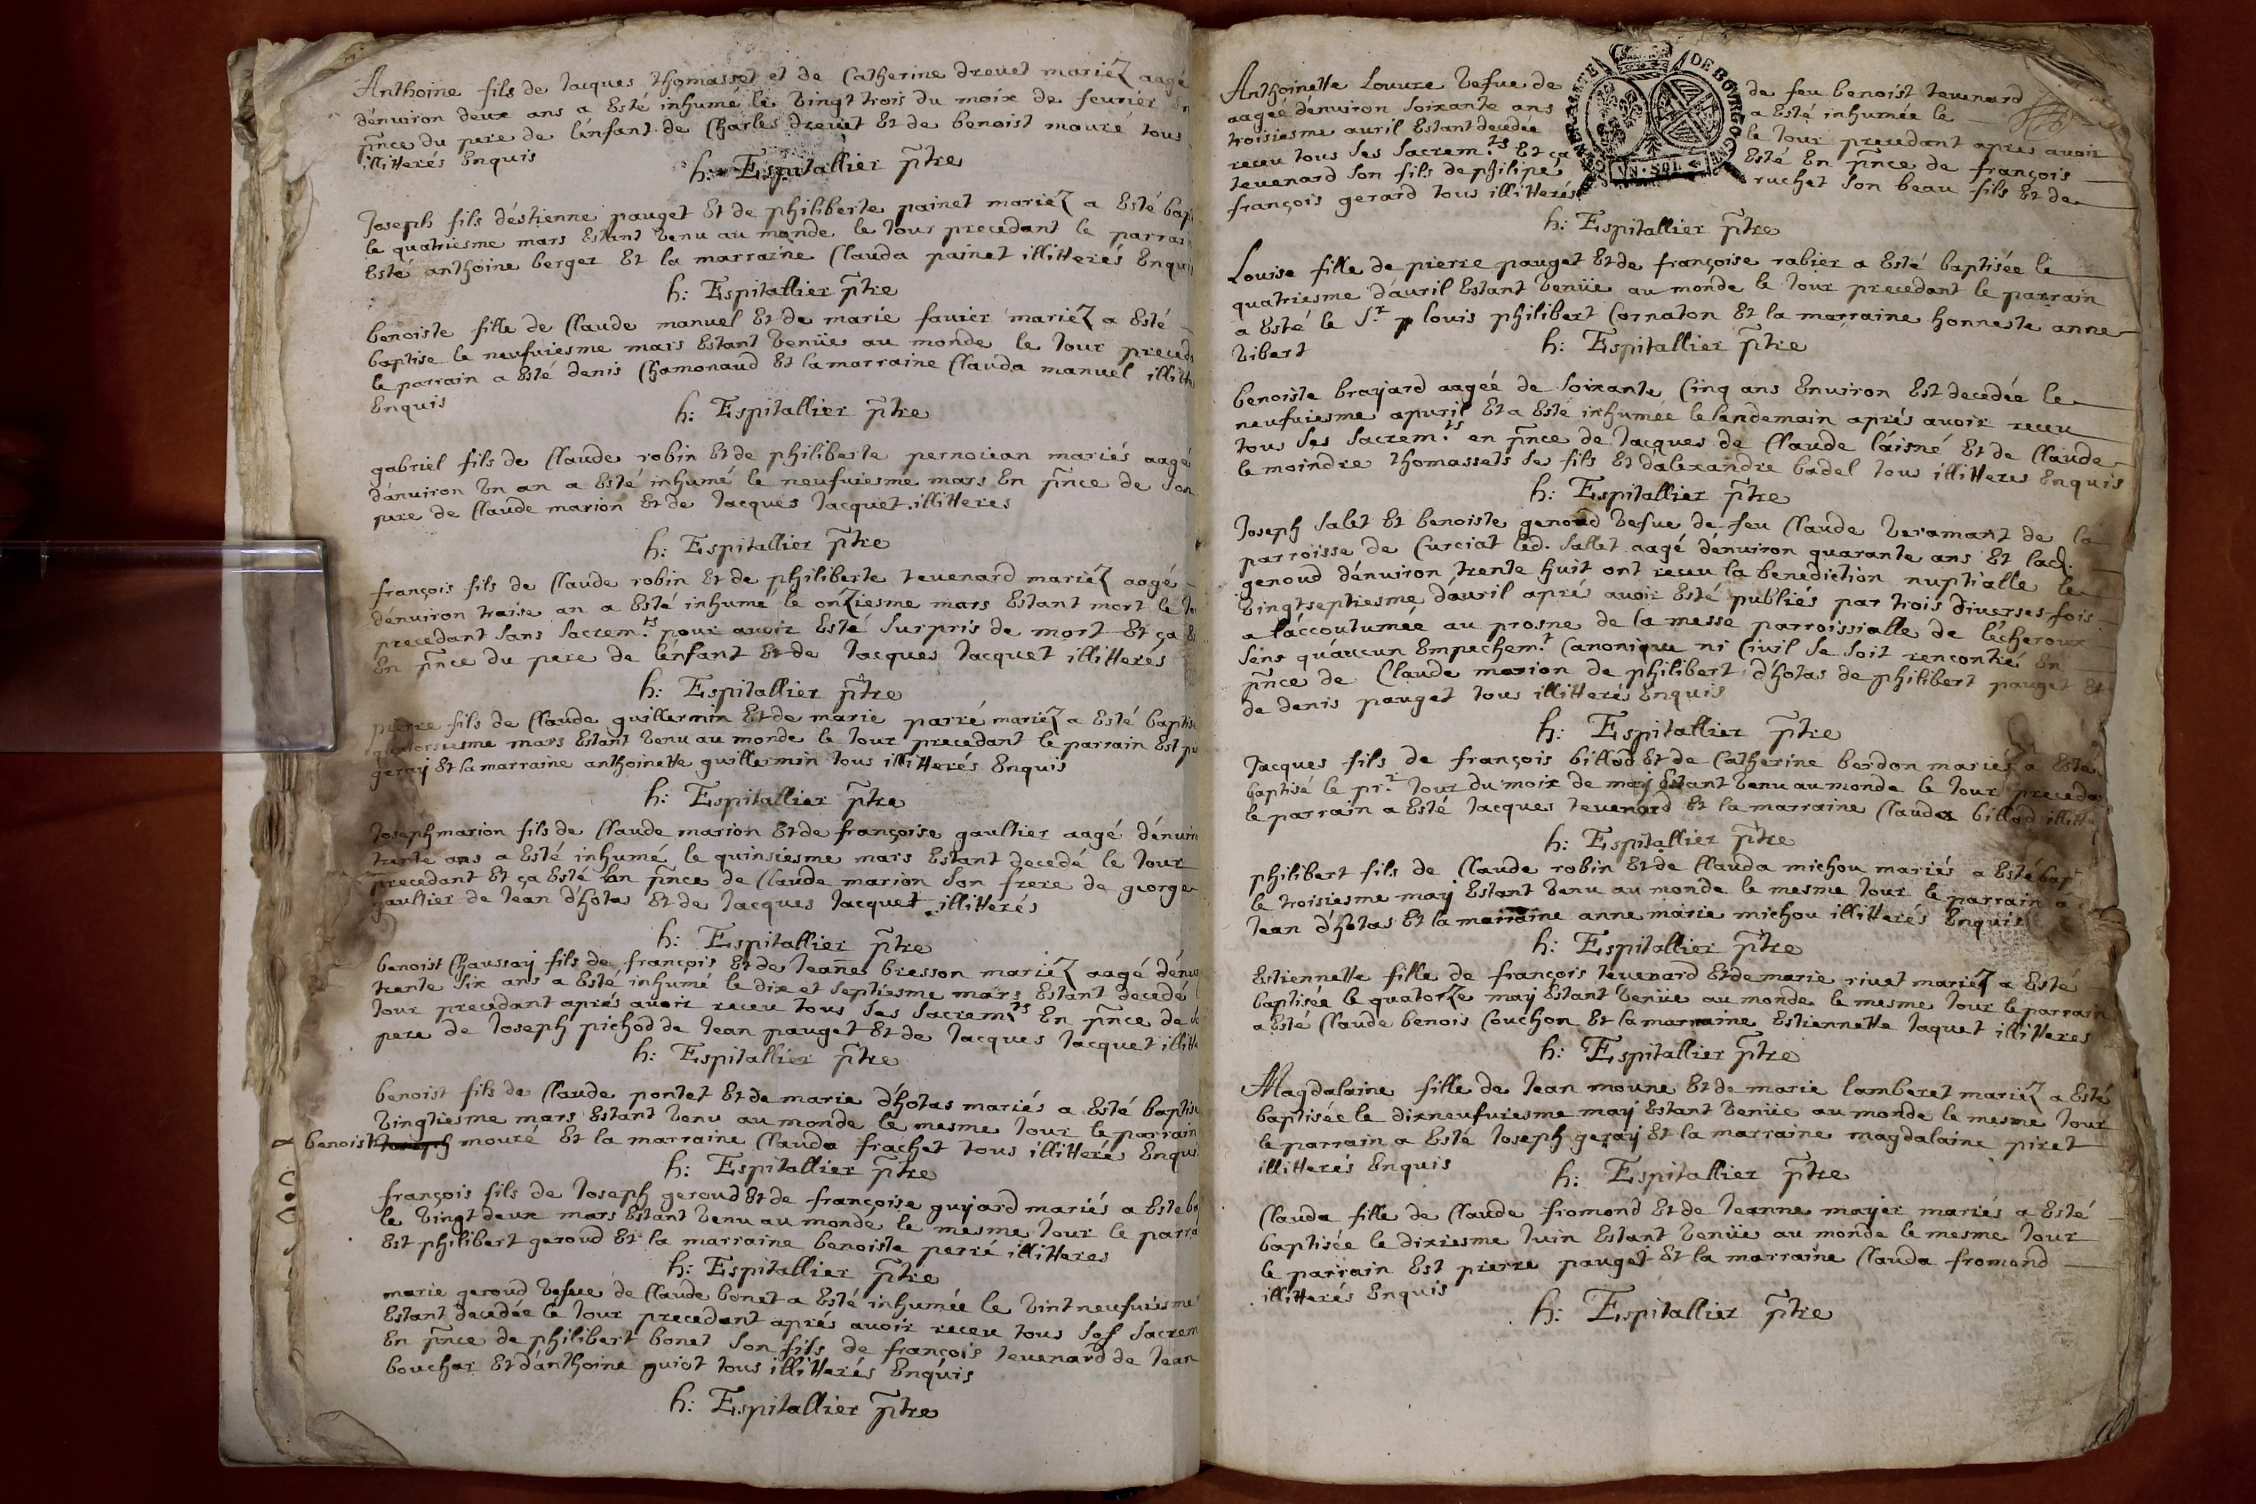 Anthoine fils de Jacques thomasset et de Catherine drevet mariéz aagé
dénviron deux ans a Esté inhumé le vingt trois du moix de fevrier En
pnce du pere de lénfant de Charles drevet Et de benoist mouré tous
illitterés Enquis
h: Espitallier ptre
Joseph fils déstienne pauget Et de philiberte painet mariéz a Esté bap
le quatriesme mars Estant venu au monde le Jour precedant le parrain
Esté anthoine berger Et la marraine Clauda painet illitterés Enquis
h: Espitallier ptre
benoiste fille de Claude manuel Et de marie favier mariéz a Esté
baptise le neufviesme mars Estant venüe au monde le Jour preced
le parrain a Esté denis Chamonaud Et la marraine Clauda manuel illitt
Enquis
h: Espitallier ptre
gabriel fils de Claude robin Et de philiberte mariés aagé
dánviron Un an a Esté inhumé le neufviesme mars En pnce de son
pere de Claude marion Et de Jacques Jacquet illitteres
h: Espitallier ptre
françois fils de Claude robin Et de philiberte tevenard mariéz aagé
dénviron traise an a Esté inhumé le onziesme mars Estant mort le Jo
precedant sans sacrem.ts pour avoir Esté surpris de mort Et ça E
En pnce du pere de lénfant Et de Jacques Jacquet illitterés
h: Espitallier ptre
pierre fils de Claude guillermin Et de marie parré mariéz a Esté baptisé
quatorsiesme mars Estant venu au monde le Jour precedant le parrain Est
geray Et la marraine anthoinette guillermin tous illitterés Enquis
h: Espitallier ptre
Joseph marion fils de Claude marion Et de françoise gaultier aagé dénviro
trante ans a Esté inhumé le quinsiesme mars Estant decedé le Jour
precedant Et ça Esté En pnce de Claude marion son frere de george
gaultier de Jean d'hotas Et de Jacques Jacquet illitterés
h: Espitallier ptre
benoist Chaussay fils de françois Et de Jeanne bresson mariéz aagé dénv
trente six ans a Esté inhumé le dix et septiesme mars Estant decedé
Jour precedant aprés avoir receu tous ses sacrem.ts En pnce de
pere de Joseph pichod de Jean pauget Et de Jacques Jacquet illitte
h: Espitallier ptre
benoist fils de Claude pontet Et de marie d'hotas mariés a Esté baptisé
vingtiesme mars Estant venu au monde le mesme Jour le parrain
benoist Joseph mouré Et la marraine Clauda frachet tous illitteré Enquis
h: Espitallier ptre
françois fils de Joseph geroud Et de françoise guyard mariés a Esté ba
le vingt deux mars Estant venu au monde le mesme Jour le parra
Est philibert geroud Et la marraine benoiste perré illitteres
h: Espitallier ptre
marie geroud vefve de Claude bonet a Esté inhumée le vint neufviesme
Estant decedée le Jour precedant aprés avoir receu tous ses sacrem
En pnce de philibert bonet son fils de françois tevenard de Jean
bouchar Et dánthoine guiot tous illitterés Enquis
h: Espitallier ptre
GENERALITE DE BOURGOGNE
UN SOL
Anthoinette Louvre vefve de de feu benoist tevenard
aagée dénviron soixante ans a Esté inhumée le
troisiesme avril Estant decedée le Jour precedant apres avoir
receu tous ses sacrem.ts Et ça Esté En pnce de françois
tevenard son fils de philipe ruchet son beau fils Et de
françois gerard tous illitterés
h: Espitallier ptre
Louise fille de pierre pauget Et de françoise rabier a Esté baptisée le
quatriesme dávril Estant venüe au monde le Jour precedant le parrain
a Esté le s.r p louis philibert Cornaton Et la marraine honneste anne
vibert
h: Espitallier ptre
benoiste brayard aagée de soixante Cinq ans Environ Est decedée le
neufviesme apvril Et a Esté inhumée le landemain aprés avoir receu
tous ses sacrem.ts en pnce de Jacques de Claude láisné Et de Claude
le moindre thomassets se fils Et dálexandre badel tous illitteres Enquis
h: Espitallier ptre
Joseph salet Et benoiste genoud vefve de feu Claude veramant de la
parroisse de Curciat led. sallet aagé dénviron quarante ans Et lad.
genoud dénviron trente huit ont receu la benediction nuptialle le
vingtseptiesme dávril aprés avoir Esté publiés par trois diverses fois
a láccoutumée au prosne de la messe parroissialle de lécheroux
sens quáucun Empechém.t Canonique ni Civil se soit rencontré En
pnce de Claude marion de philibert d'hotas de philibert pauget Et
de denis pauget tous illitteré Enquis
h: Espitallier ptre
Jacques fils de françois billod Et de Catherine berdon mariés a Esté
baptisé le pr.r Jour du moix de may Estant venu au monde le Jour preceda
le parrain a Esté Jacques tevenard Et la marraine Clauda billod illitte
h: Espitallier ptre
philibert fils de Claude robin Et de Clauda michou mariés a Esté bap
le troisiesme may Estant venu au monde le mesme Jour le parrain a
Jean d'hotas Et la marraine anne marie michou illitterés Enquis
h: Espitallier ptre
Estiennette fille de françois tevenard Et de marie rivet mariéz a Esté
baptisée le quatorze may Estant venüe au monde le mesme Jour le parrain
a Esté Claude benois Couchon Et la marraine Estiennette Jaquet illitteres
h: Espitallier ptre
Magdalaine fille de Jean moune Et de marie lamberet mariéz a Esté
baptisée le dixneufviesme may Estant venüe au monde le mesme Jour
le parrain a Esté Joseph geray Et la marraine magdalaine piret
illitterés Enquis
h: Espitallier ptre
Clauda fille de Claude fromond Et de Jeanne mayer mariés a Esté
baptisée le dixiesme Juin Estant venüe au monde le mesme Jour
le parrain Est pierre pauget Et la marraine Clauda fromond
illitterés Enquis
h: Espitallier ptre